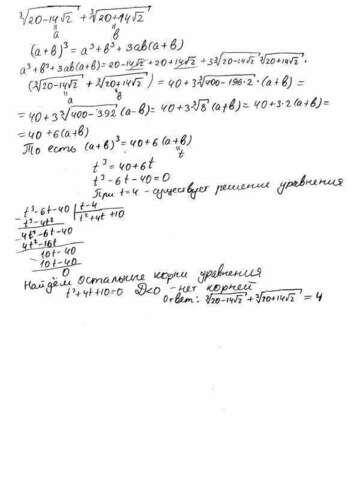 ∛(20-14√2) + ∛(20+14√2)
a b
(a+b)³ = a³+b³+3ab(a+b)
a³+b³+3ab(a+b) = 20-14√2 + 20+14√2 + 3∛(20-14√2) ∛(20+14√2) ·
(∛(20-14√2) + ∛(20+14√2)) = 40+3∛(400-196·2) · (a+b) =
a b
= 40+3∛(400-392) (a-b) = 40+3∛8 (a+b) = 40+3·2 (a+b) =
= 40+6(a+b)
То есть (a+b)³ = 40+6(a+b)
t
t³ = 40+6t
t³-6t-40=0
При t=4 - существует решение уравнения
t³-6t-40 | t-4
t³-4t² t²+4t+10
4t²-6t-40
4t²-16t
10t-40
10t-40
0
Найдём остальные корни уравнения
t²+4t+10=0 D<0 - нет корней
Ответ: ∛(20-14√2) + ∛(20+14√2) = 4